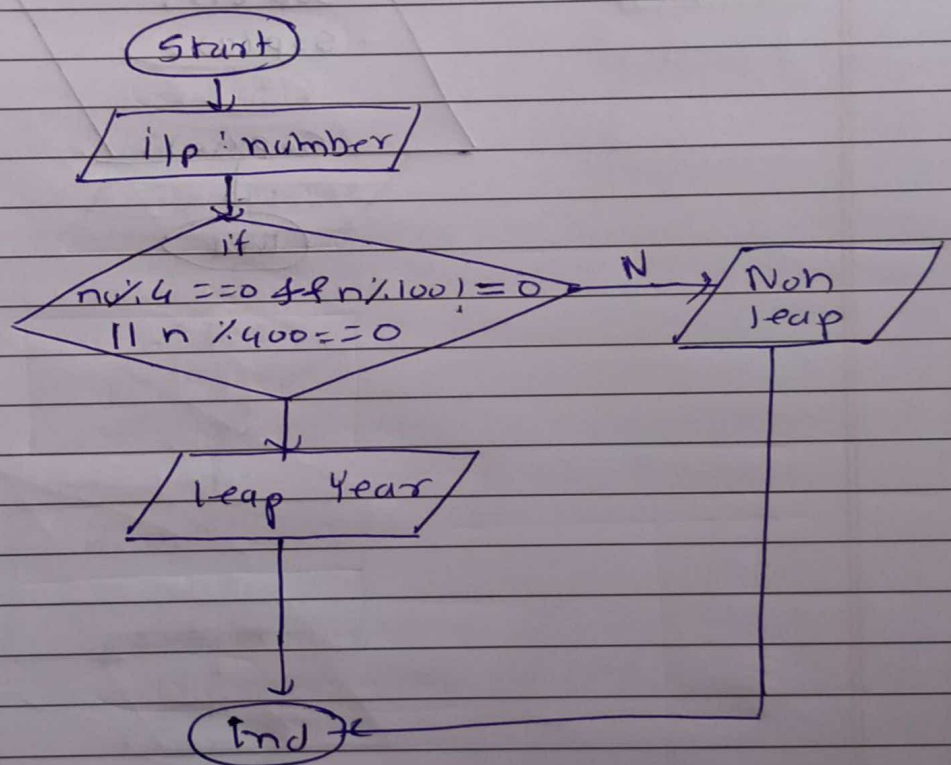 Start
i/p : number
if
n%4 ==0 && n%100 != 0
|| n %400==0
N
Non
leap
leap Year
End